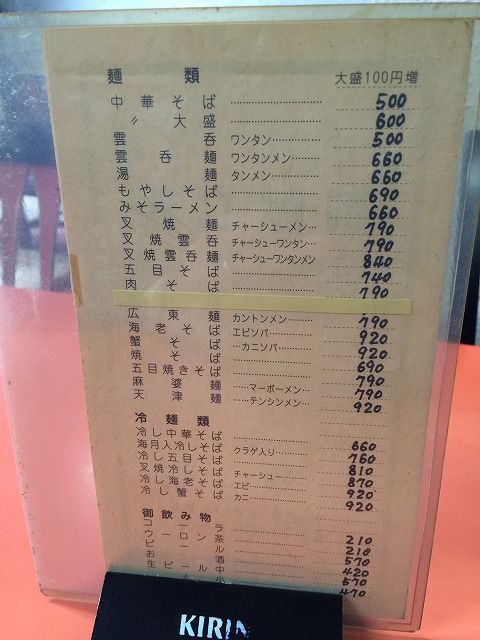 麺類 大盛100円増
中華そば 500
〃大盛 600
雲呑 ワンタン 500
雲呑麺 ワンタンメン 660
湯麺 タンメン 660
もやしそば 690
みそラーメン 660
叉焼麺 チャーシューメン 790
叉焼雲呑 チャーシューワンタン 790
叉焼雲呑麺 チャーシューワンタンメン 840
五目そば 740
肉そば 790
広東麺 カントンメン 790
海老そば エビソバ 920
蟹そば カニソバ 920
焼そば 690
五目焼きそば 790
麻婆麺 マーボーメン 790
天津麺 テンシンメン 920
冷麺類
冷し中華そば 660
海月入冷しそば クラゲ入り 760
冷し五目そば 810
叉焼冷しそば チャーシュー 870
冷し海老そば エビ 920
冷し蟹そば カニ 920
御飲み物
コーラ 210
ウーロン茶 210
ビール 570
お酒 420
生ビール中 570
〃小 470
KIRIN